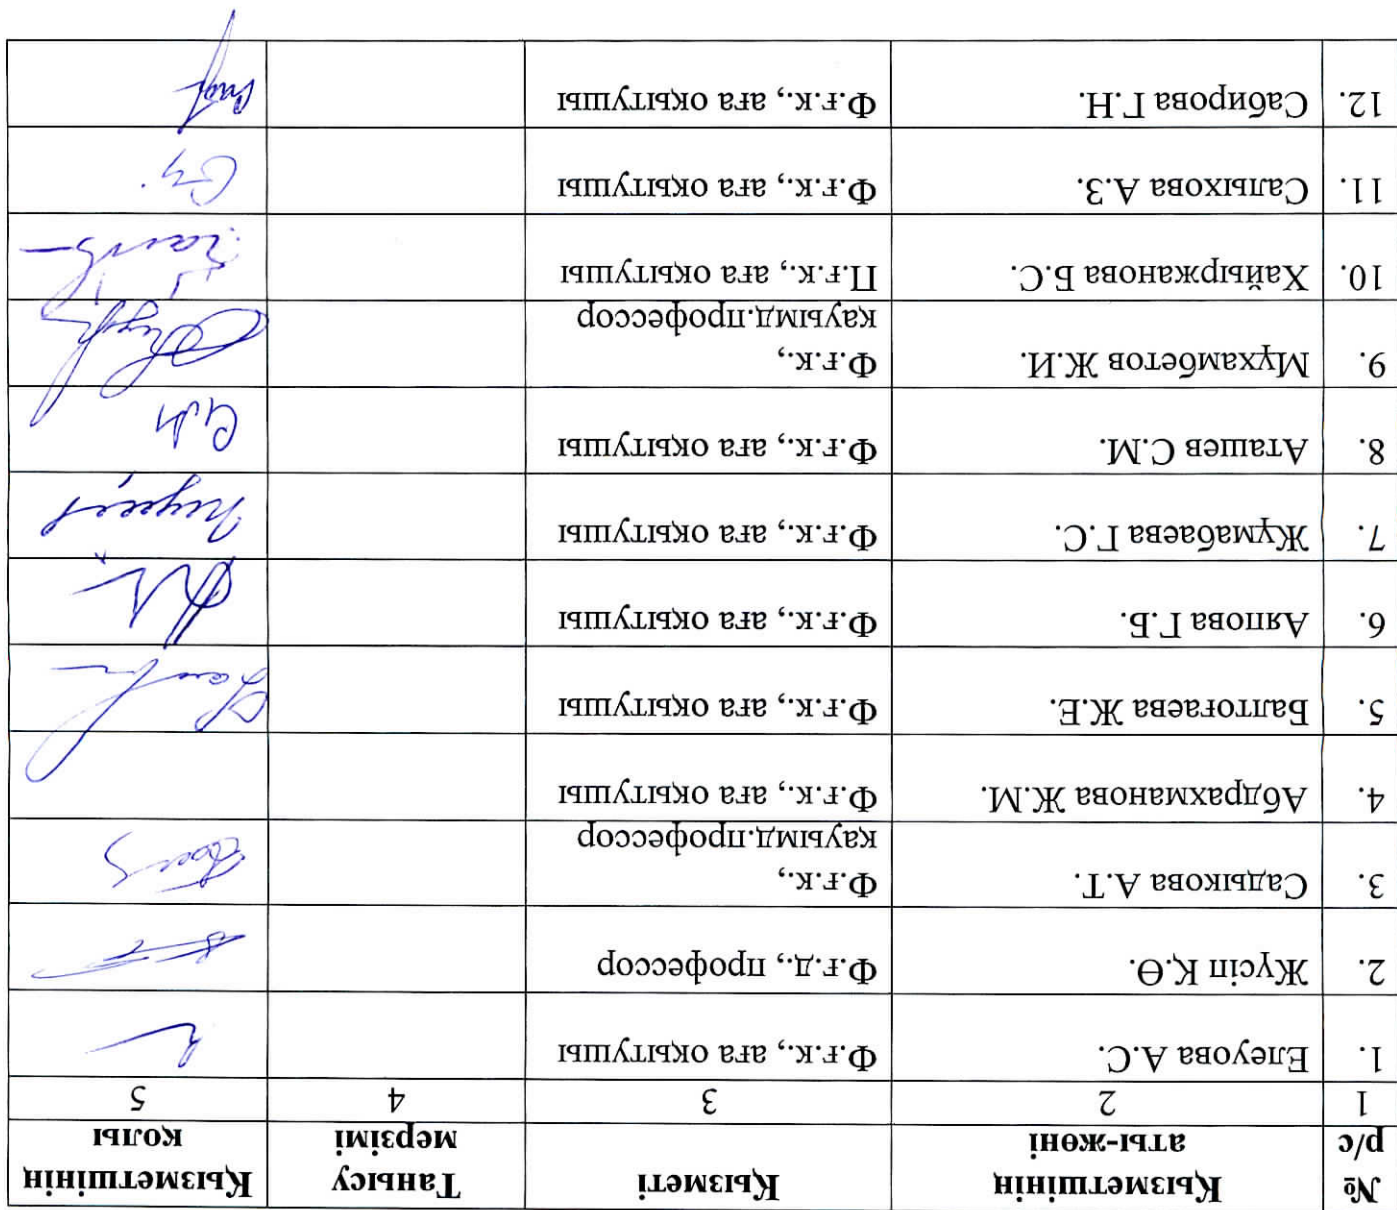 № р/с Қызметшінің аты-жөні Қызметі Танысу мерзімі Қызметшінің қолы
1 2 3 4 5
1. Елеуова А.С. Ф.ғ.к., аға оқытушы
2. Жүсіп Қ.Ө. Ф.ғ.д., профессор
3. Садыкова А.Т. Ф.ғ.к., қауымд.профессор
4. Абдрахманова Ж.М. Ф.ғ.к., аға оқытушы
5. Балтоғаева Ж.Е. Ф.ғ.к., аға оқытушы
6. Аяпова Г.Б. Ф.ғ.к., аға оқытушы
7. Жұмабаева Г.С. Ф.ғ.к., аға оқытушы
8. Аташев С.М. Ф.ғ.к., аға оқытушы
9. Мұхамбетов Ж.И. Ф.ғ.к., қауымд.профессор
10. Хайыржанова Б.С. П.ғ.к., аға оқытушы
11. Салыхова А.З. Ф.ғ.к., аға оқытушы
12. Сабирова Г.Н. Ф.ғ.к., аға оқытушы